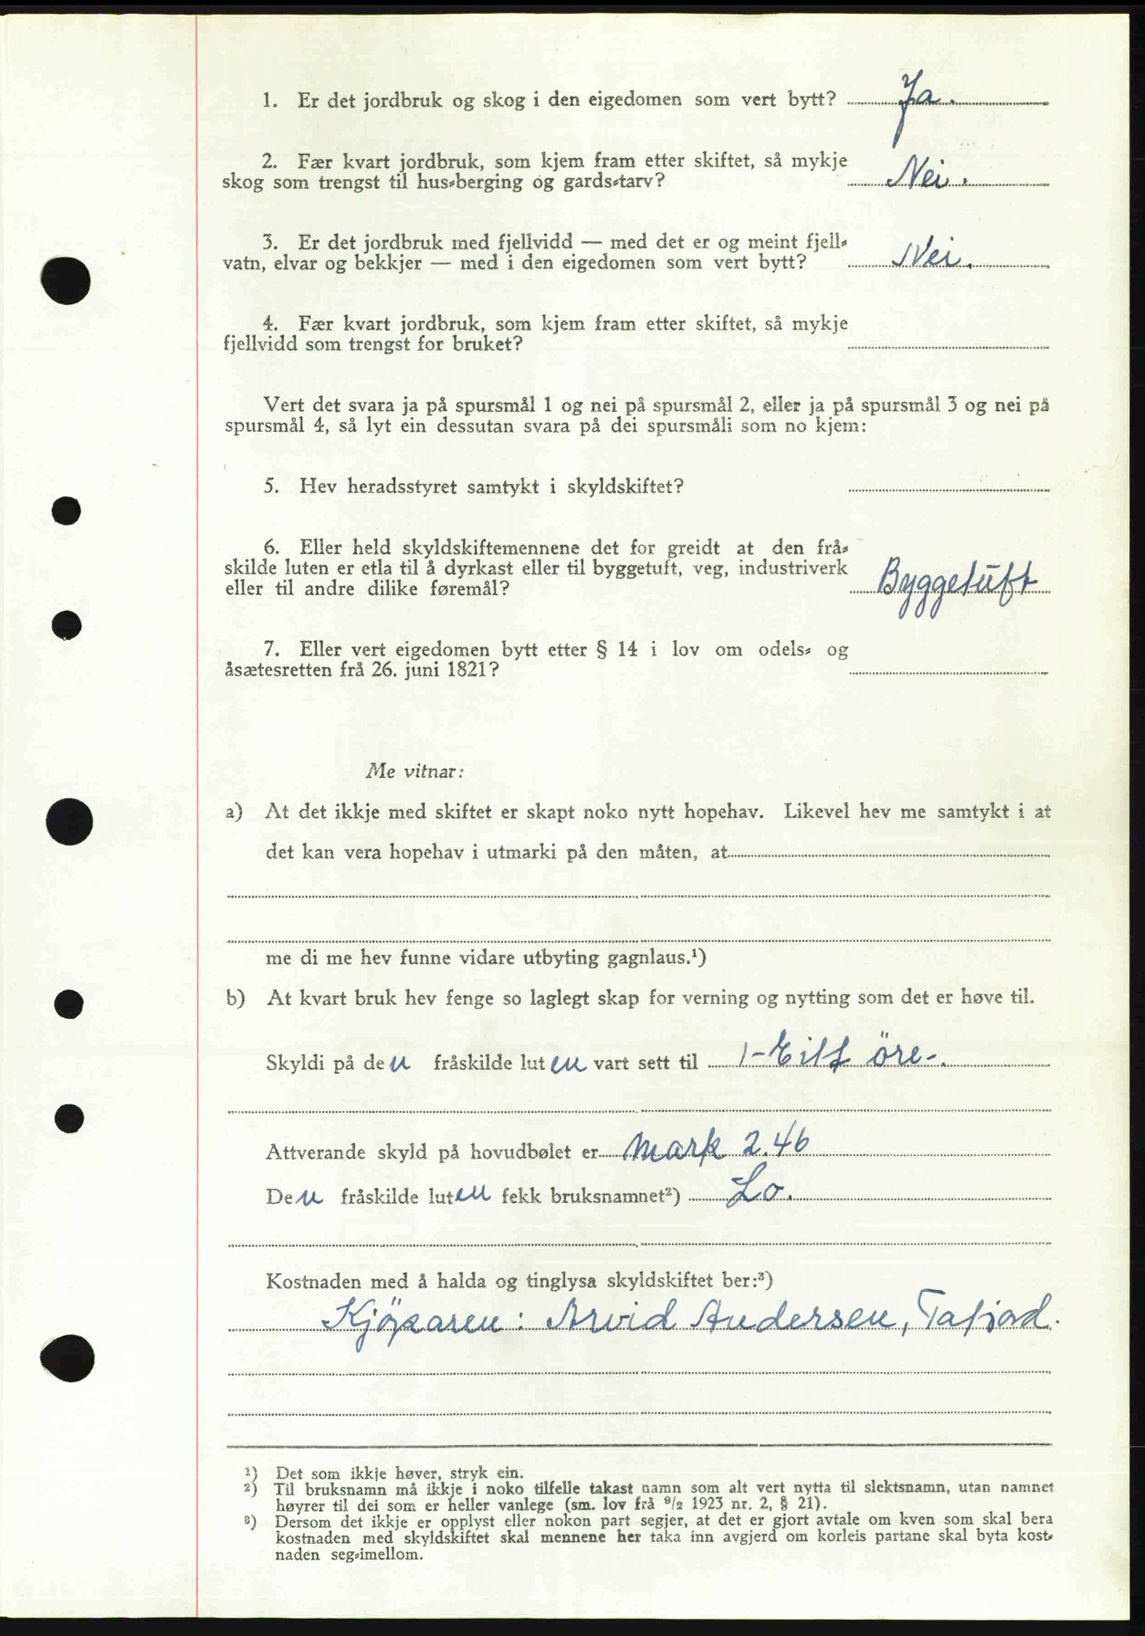 1. Er det jordbruk og skog i den eigedomen som vert bytt? Ja.
2. Fær kvart jordbruk, som kjem fram etter skiftet, så mykje
skog som trengst til hus-berging og gards-tarv? Nei.
3. Er det jordbruk med fjellvidd — med det er og meint fjell-
vatn, elvar og bekkjer — med i den eigedomen som vert bytt? Nei.
4. Fær kvart jordbruk, som kjem fram etter skiftet, så mykje
fjellvidd som trengst for bruket?
Vert det svara ja på spursmål 1 og nei på spursmål 2, eller ja på spursmål 3 og nei på
spursmål 4, så lyt ein dessutan svara på dei spursmåli som no kjem:
5. Hev heradsstyret samtykt i skyldskiftet?
6. Eller held skyldskiftemennene det for greidt at den frå-
skilde luten er etla til å dyrkast eller til byggetuft, veg, industriverk
eller til andre dilike føremål? Byggetuft
7. Eller vert eigedomen bytt etter § 14 i lov om odels- og
åsætesretten frå 26. juni 1821?
Me vitnar:
a) At det ikkje med skiftet er skapt noko nytt hopehav. Likevel hev me samtykt i at
det kan vera hopehav i utmarki på den måten, at
me di me hev funne vidare utbyting gagnlaus.¹)
b) At kvart bruk hev fenge so laglegt skap for verning og nytting som det er høve til.
Skyldi på den fråskilde luten vart sett til 1-Eitt öre-.
Attverande skyld på hovudbølet er mark 2.46
Den fråskilde luten fekk bruksnamnet²) Lo.
Kostnaden med å halda og tinglysa skyldskiftet ber:³)
Kjöparen: Arvid Andersen, Tafjord.
¹) Det som ikkje høver, stryk ein.
²) Til bruksnamn må ikkje i noko tilfelle takast namn som alt vert nytta til slektsnamn, utan namnet
høyrer til dei som er heller vanlege (sm. lov frå ⁹/₂ 1923 nr. 2, § 21).
³) Dersom det ikkje er opplyst eller nokon part segjer, at det er gjort avtale om kven som skal bera
kostnaden med skyldskiftet skal mennene her taka inn avgjerd om korleis partane skal byta kost-
naden seg-imellom.